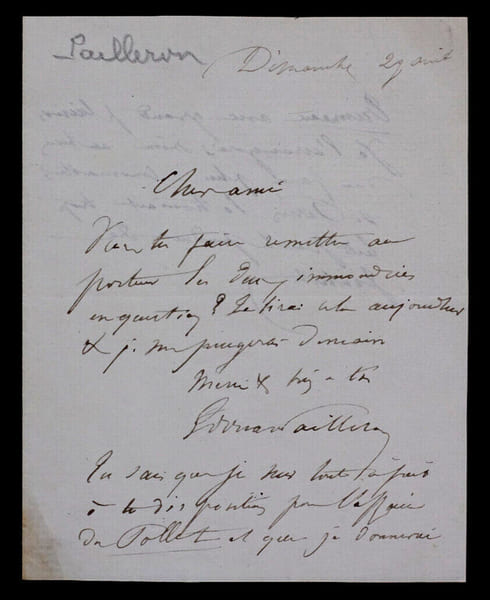 Pailleron
Dimanche 29 avril
Cher ami
Veux tu faire remettre au
porteur les deux immondices
en question ? Je lirai cela aujourd'hui
& je me purgerai demain
Merci & bien à toi
Edouard Pailleron
Tu sais que je suis tout à fait
à ta disposition pour l'affaire
du Pollet et que je donnerai